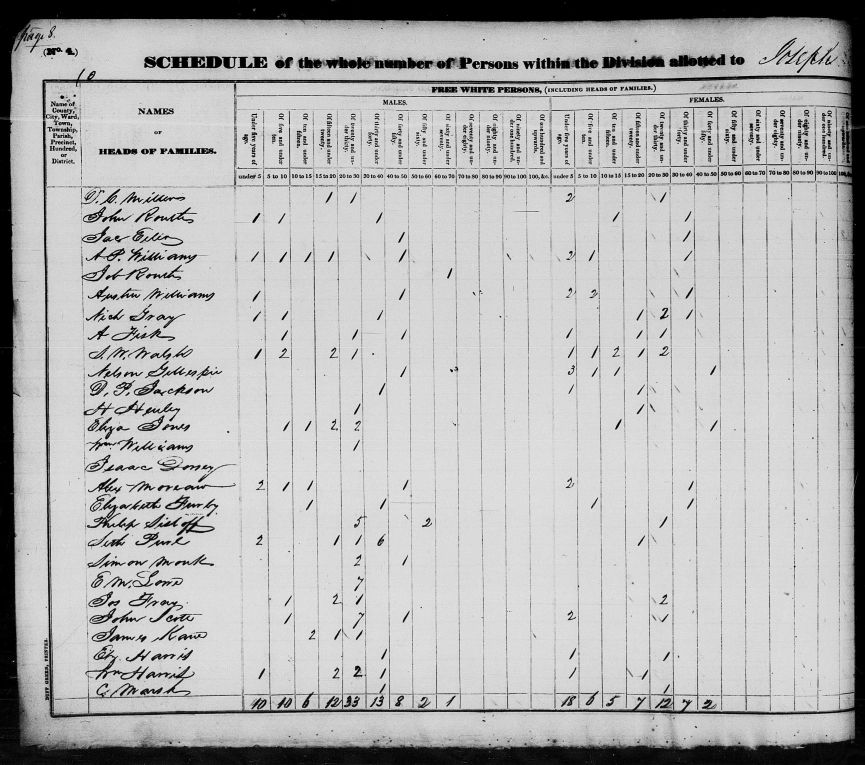 Page 8.
(No. 4.)
SCHEDULE of the whole number of Persons within the Division allotted to Joseph
10
FREE WHITE PERSONS, (INCLUDING HEADS OF FAMILIES.)
Name of County, City, Ward, Town, Township, Parish, Precinct, Hundred, or District.
NAMES OF HEADS OF FAMILIES.
MALES.
FEMALES.
Under five years of age. Of five and under ten. Of ten and under fifteen. Of fifteen and under twenty. Of twenty and under thirty. Of thirty and under forty. Of forty and under fifty. Of fifty and under sixty. Of sixty and under seventy. Of seventy and under eighty. Of eighty and under ninety. Of ninety and under one hundred. Of one hundred and upwards. Under five years of age. Of five and under ten. Of ten and under fifteen. Of fifteen and under twenty. Of twenty and under thirty. Of thirty and under forty. Of forty and under fifty. Of fifty and under sixty. Of sixty and under seventy. Of seventy and under eighty. Of eighty and under ninety. Of ninety and under one hundred.
under 5 5 to 10 10 to 15 15 to 20 20 to 30 30 to 40 40 to 50 50 to 60 60 to 70 70 to 80 80 to 90 90 to 100 100, &c. under 5 5 to 10 10 to 15 15 to 20 20 to 30 30 to 40 40 to 50 50 to 60 60 to 70 70 to 80 80 to 90 90 to 100 100,
1 1 2 1
John Routh 1 1 1 1 1
1 1
A P. Williams 1 1 1 1 1 2 1 1
Job Routh 1
Austin Williams 1 1 2 2 1
Nich Gray 1 1 1 1 2 1
A Fisk 1 1 1 1 1 1
S. W. Walsh 1 2 2 1 1 1 2 1 2
Nelson Gillespie 1 3 1 1 1
D. P. Jackson 1 1 1
H Henley 1 1
Eliza Jones 1 1 2 2 1 1
Wm Williams 1
Isaac Dorsey
Alex Moreau 2 1 1 1 2 1
Elizabeth 1 1 1 1
Philip 5 2 1
Seth 2 1 1 6 1
Simon Monk 2 1
E M. Lowe 7
Jos Gray 1 2 1 2
John Scott 1 7 1 2 1
James Kane 2 1 1
Harris 1 1 1
Wm Harris 1 2 2 1 1 1
C. Marsh 1 1
10 10 6 12 33 13 8 2 1 18 6 5 7 12 7 2
DUFF GREEN, PRINTER.